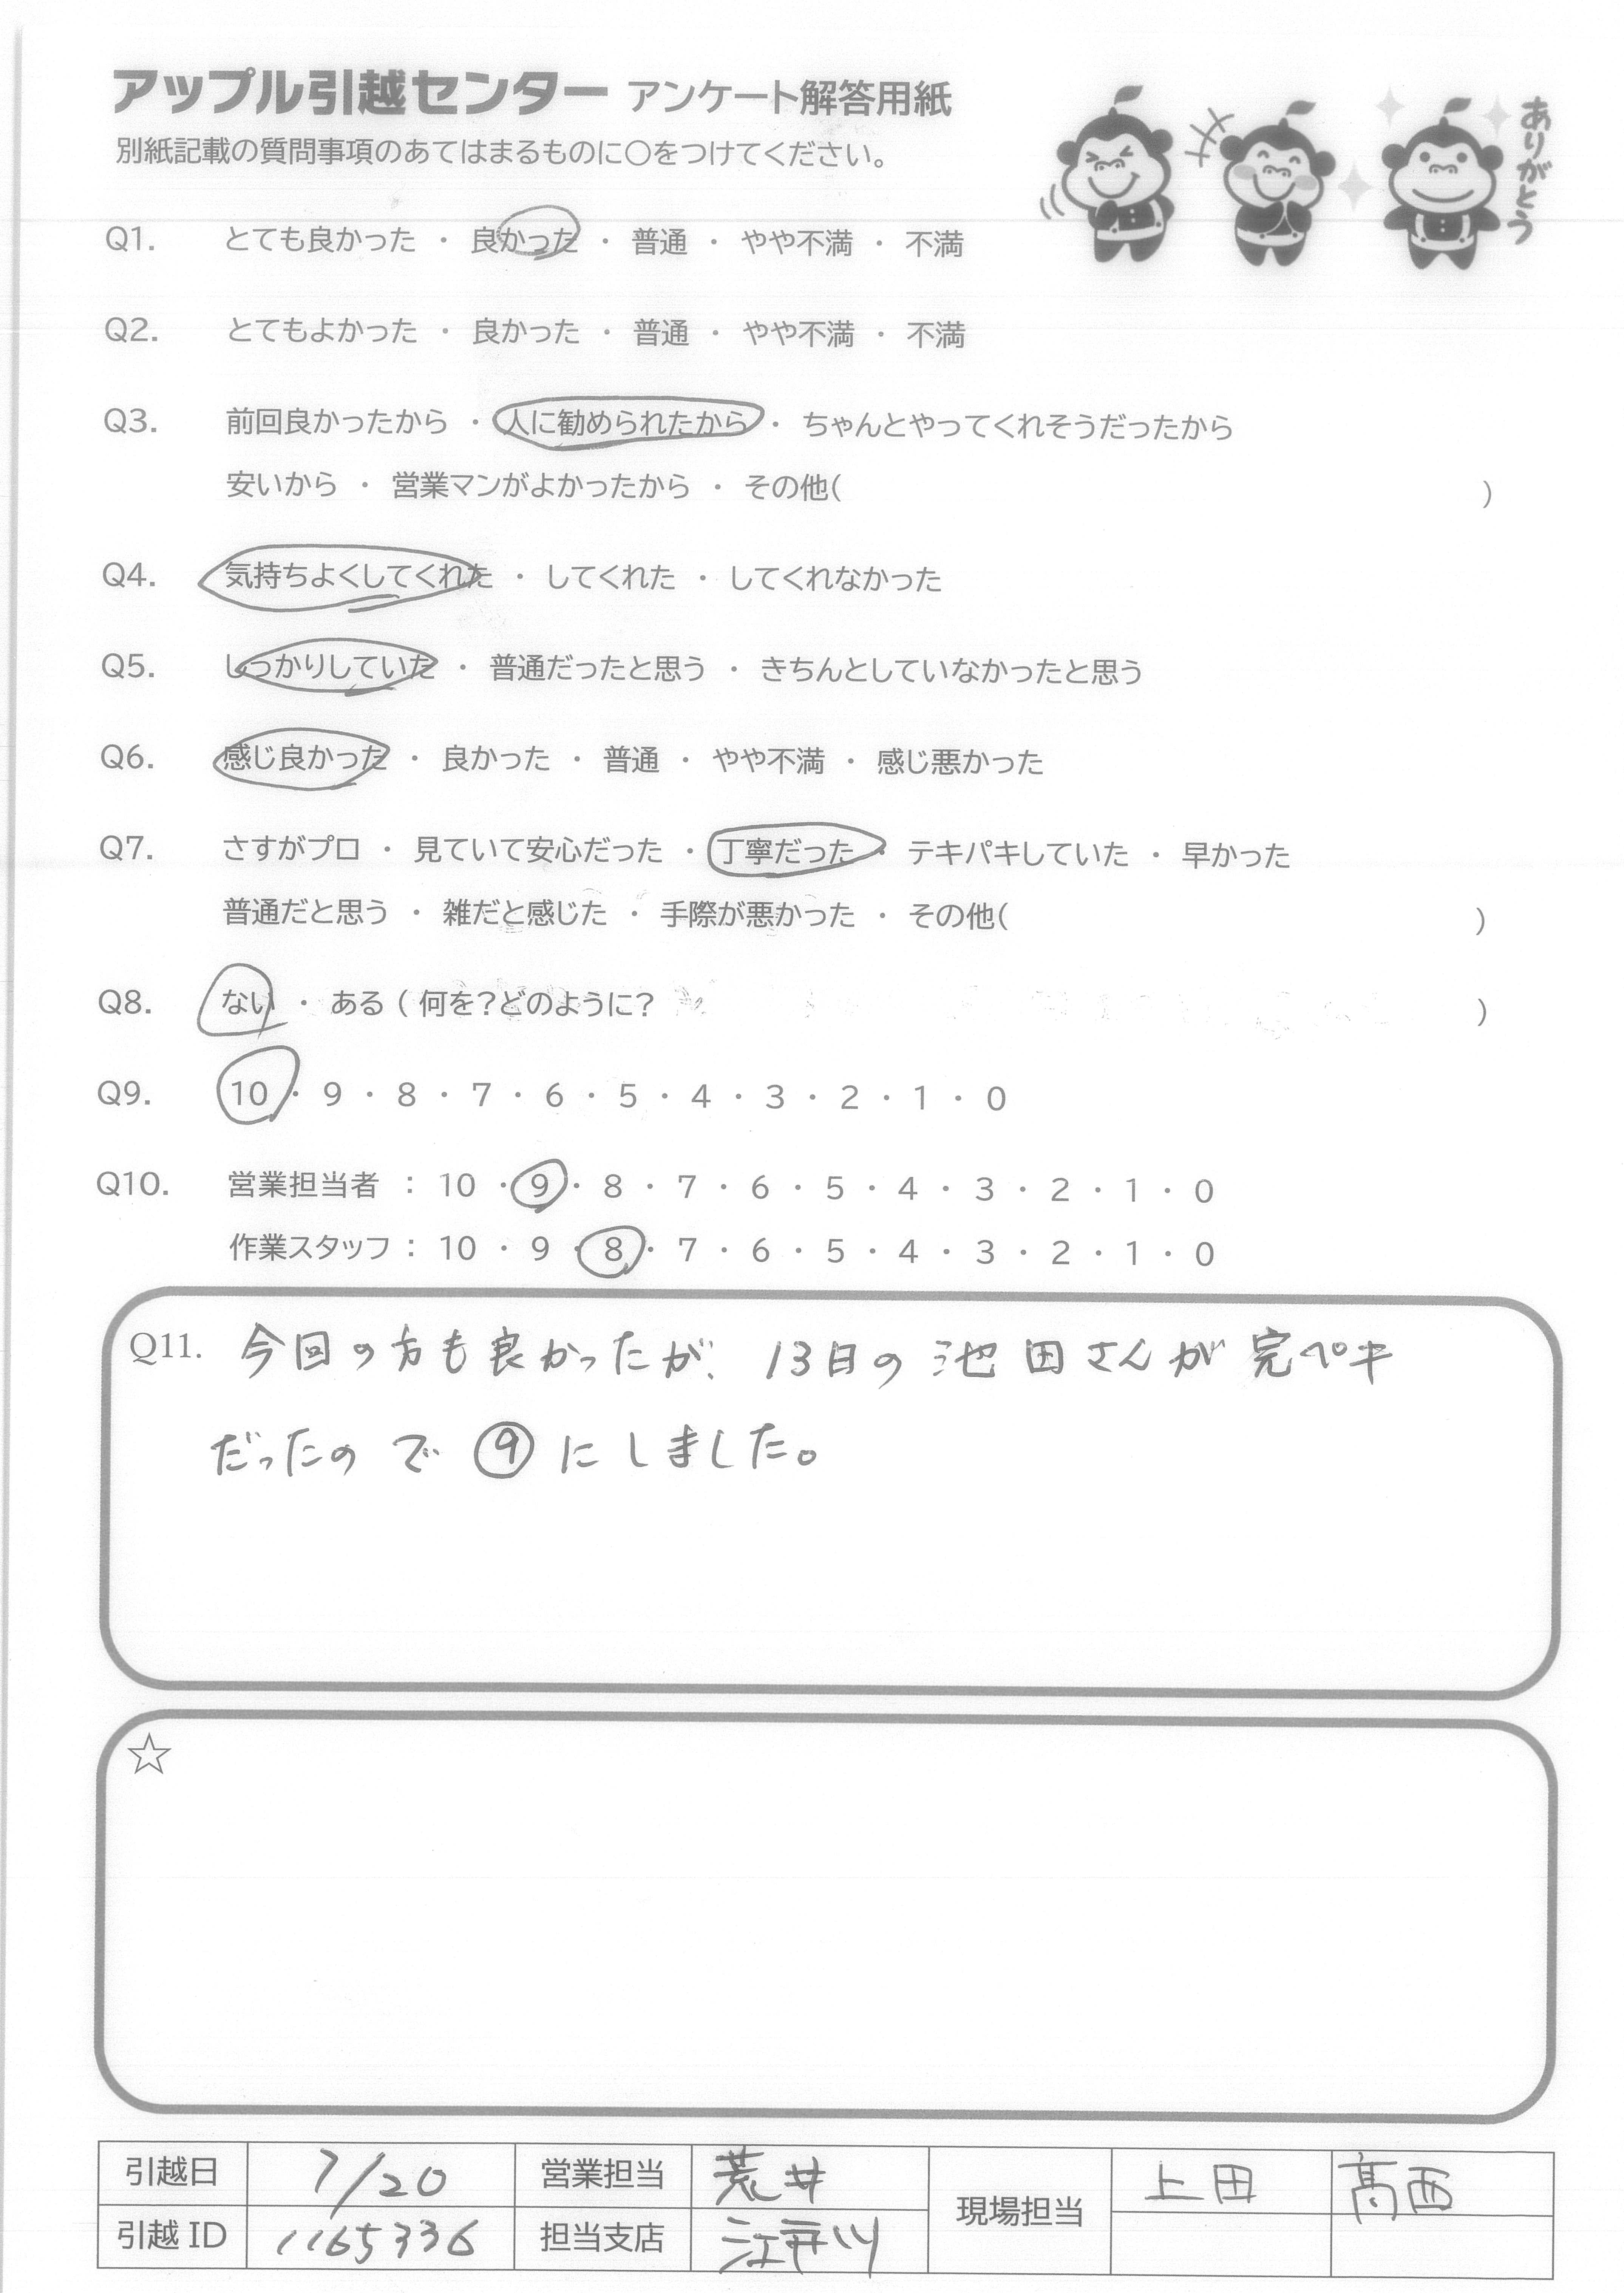 アップル引越センター アンケート解答用紙
別紙記載の質問事項のあてはまるものに○をつけてください。
ありがとう
Q1. とても良かった ・ 良かった ・ 普通 ・ やや不満 ・ 不満
Q2. とてもよかった ・ 良かった ・ 普通 ・ やや不満 ・ 不満
Q3. 前回良かったから ・ 人に勧められたから ・ ちゃんとやってくれそうだったから
安いから ・ 営業マンがよかったから ・ その他( )
Q4. 気持ちよくしてくれた ・ してくれた ・ してくれなかった
Q5. しっかりしていた ・ 普通だったと思う ・ きちんとしていなかったと思う
Q6. 感じ良かった ・ 良かった ・ 普通 ・ やや不満 ・ 感じ悪かった
Q7. さすがプロ ・ 見ていて安心だった ・ 丁寧だった ・ テキパキしていた ・ 早かった
普通だと思う ・ 雑だと感じた ・ 手際が悪かった ・ その他( )
Q8. ない ・ ある ( 何を?どのように? )
Q9. 10 ・ 9 ・ 8 ・ 7 ・ 6 ・ 5 ・ 4 ・ 3 ・ 2 ・ 1 ・ 0
Q10. 営業担当者 : 10 ・ 9 ・ 8 ・ 7 ・ 6 ・ 5 ・ 4 ・ 3 ・ 2 ・ 1 ・ 0
作業スタッフ : 10 ・ 9 ・ 8 ・ 7 ・ 6 ・ 5 ・ 4 ・ 3 ・ 2 ・ 1 ・ 0
Q11. 今回の方も良かったが、13日の池田さんが完ペキ
だったので⑨にしました。
☆
引越日 7/20 営業担当 荒井 現場担当 上田 髙西
引越ID 1165336 担当支店 江戸川